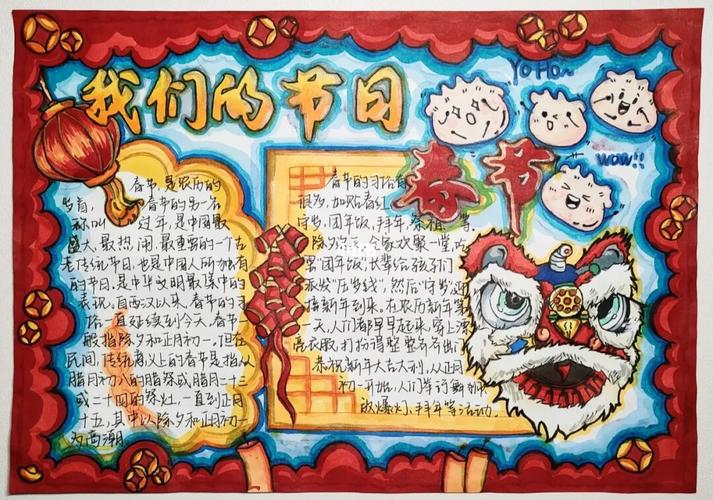 我们的节日
Yo Ho~
wow!!
春节
春节,是农历的
岁首,春节的另一名
称叫 过年,是中国最
盛大、最热闹、最重要的一个古
老传统节日,也是中国人所独有
的节日,是中华文明最集中的
表现。自西汉以来,春节的习
俗一直延续到今天。春节
般指除夕和正月初一。但在
民间,传统意义上的春节是指从
腊月初八的腊祭或腊月二十三
或二十四的祭灶,一直到正月
十五,其中以除夕和正月初一
为高潮。
春节的习俗有
很多,如贴春红
守岁,团年饭,拜年,祭祖 等。
除夕深夜,全家欢聚一堂,吃
罢"团年饭",长辈给孩子们
派发"压岁钱",然后"守岁"迎
接新年到来。在农历新年第
天,人们都早早起来,穿上漂
亮衣服,打扮得整整齐齐出门
恭祝新年大吉大利,从正月
初一开始,人们举行舞狮
放爆灯,拜年等活动。